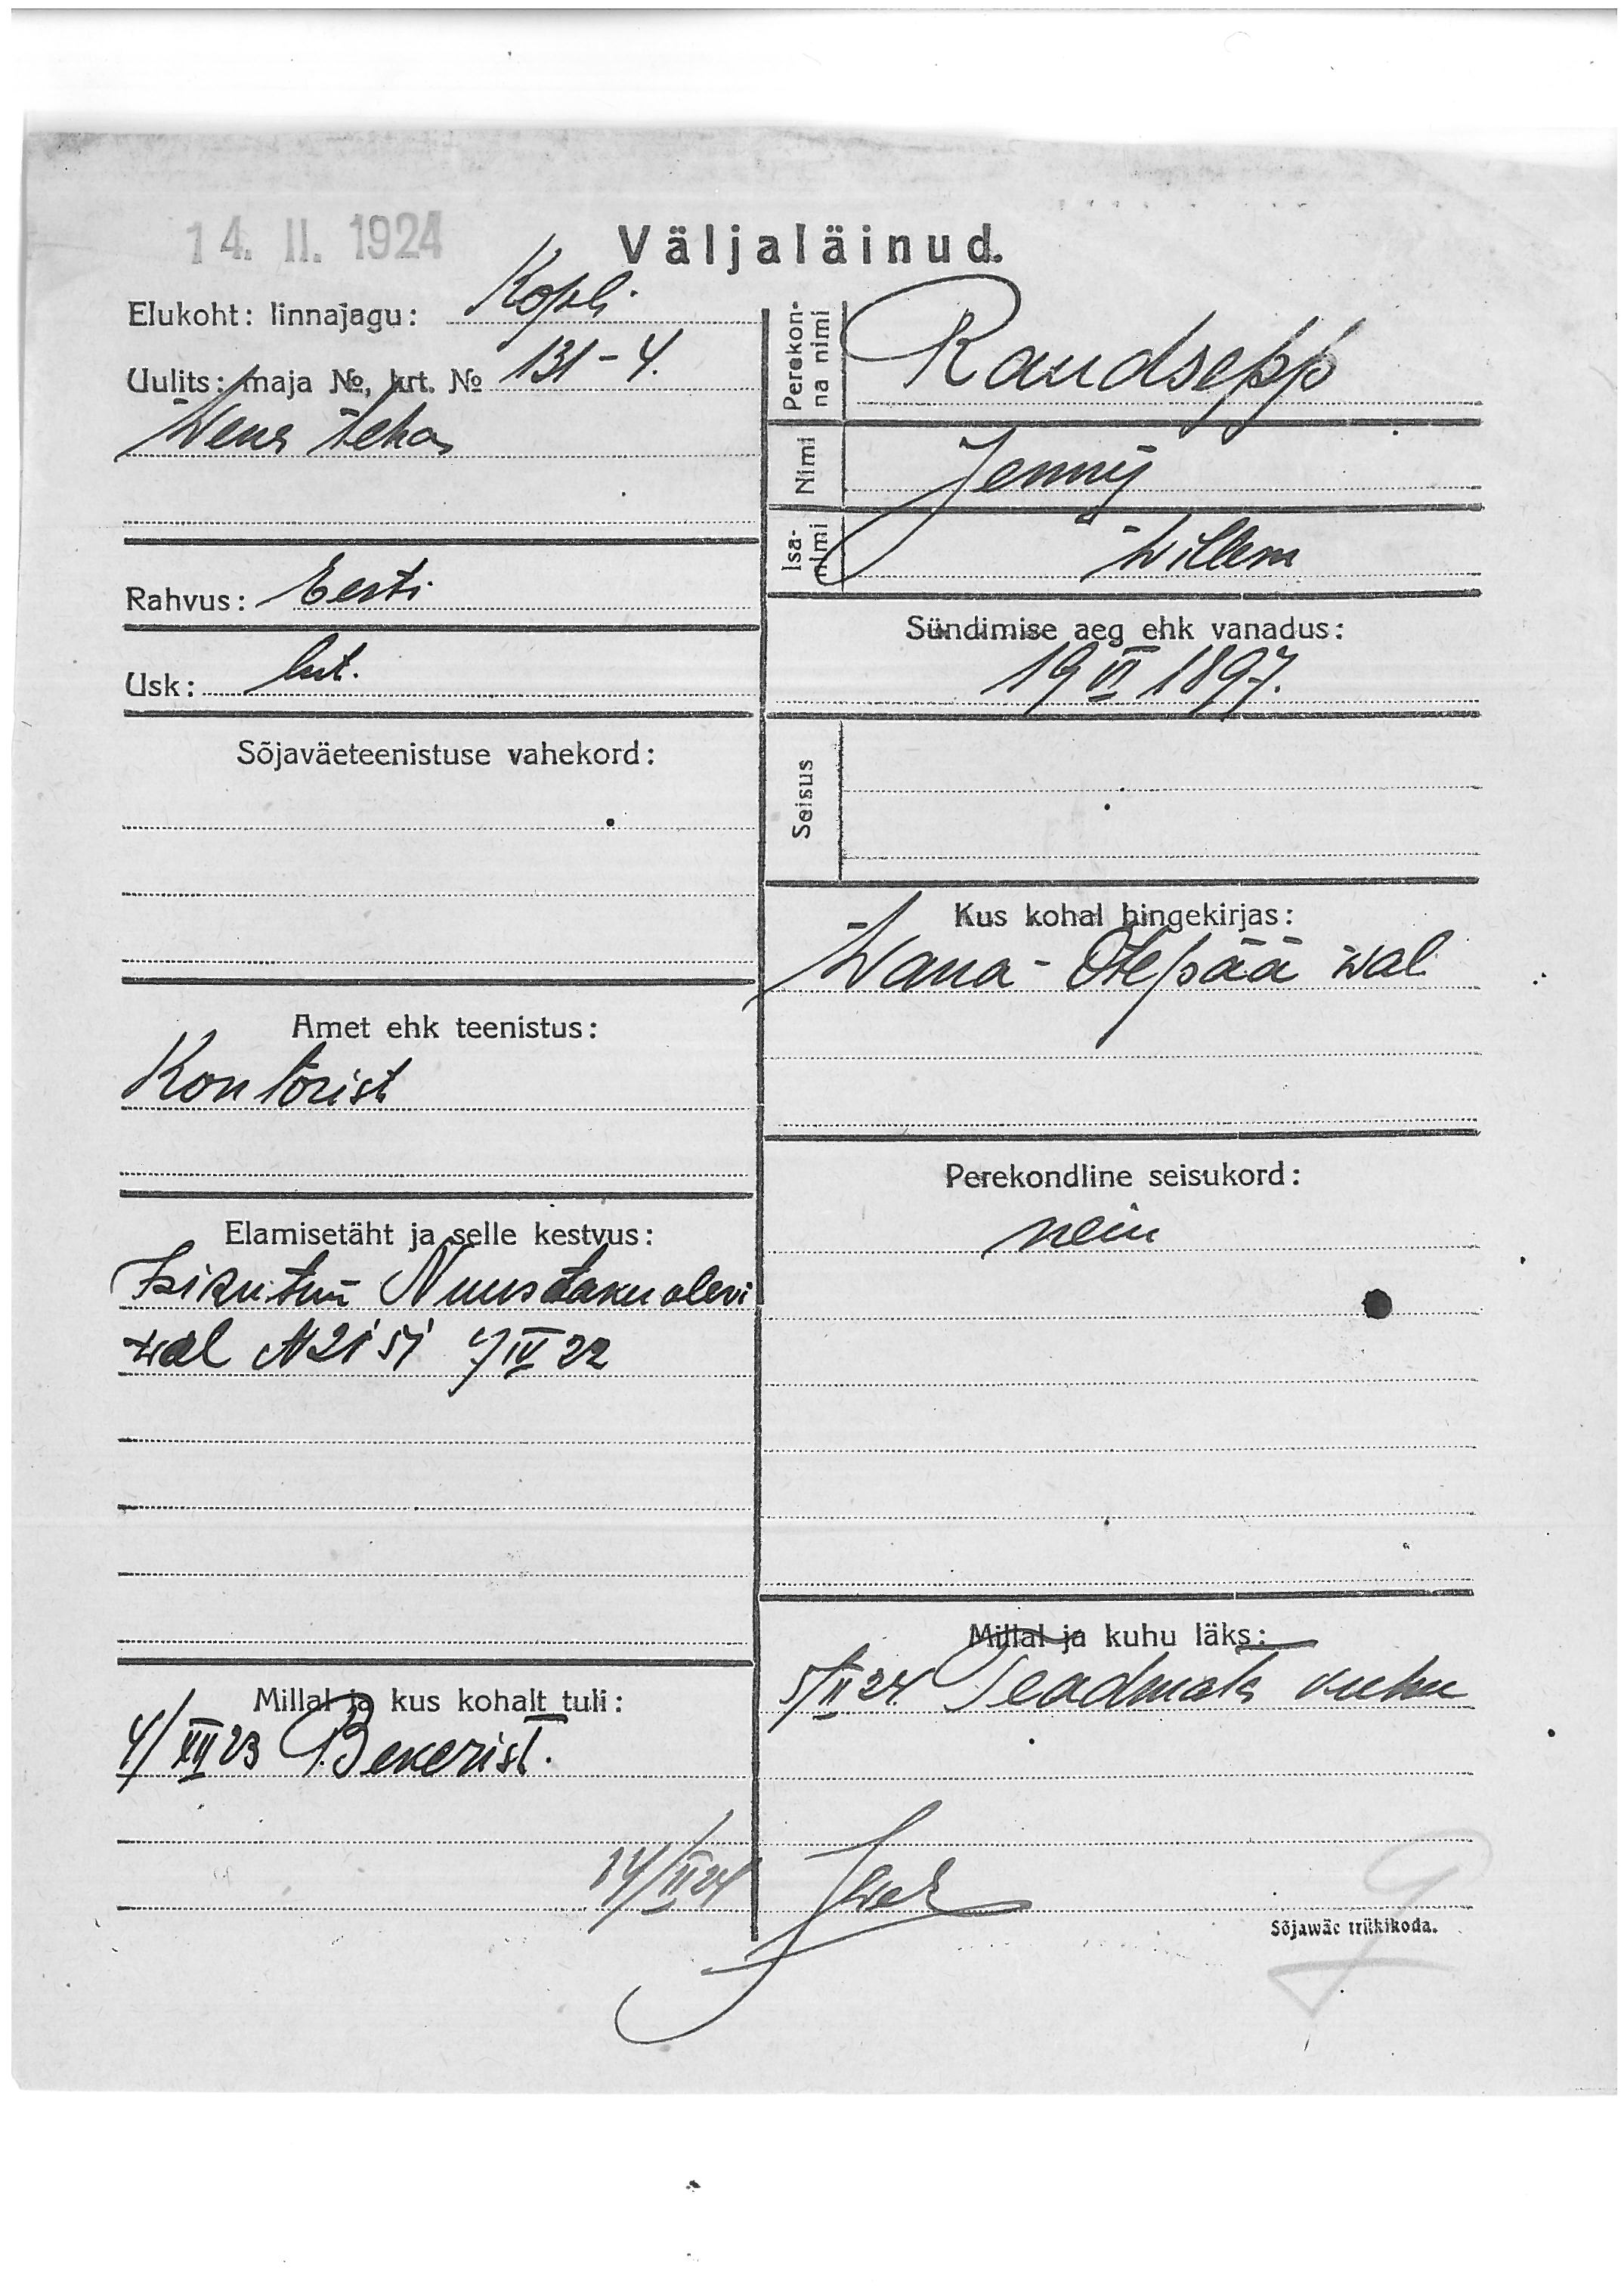 14. II. 1924
Väljaläinud.
Elukoht: linnajagu: Kopli.
Uulits: maja №, krt. № 131-4.
Wene teha
Rahvus: Eesti
Usk: lut.
Sõjaväeteenistuse vahekord:
Amet ehk teenistus:
Kontorist
Elamisetäht ja selle kestvus:
Isikutun Nuustaku alevi
wal 7 IV 22
Millal ja kus kohalt tuli:
4/XII 23 Bekerist.
14/II 24
Perekonna nimi
Raudsepp
Nimi
Jenny
Isa-nimi
Willem
Sündimise aeg ehk vanadus:
19 VI 1897.
Seisus
Kus kohal hingekirjas:
Wana-Otepää wal
Perekondline seisukord:
nein
Millal ja kuhu läks:
5/II 24 Teadmata kuhu
Sõjawäe trükikoda.